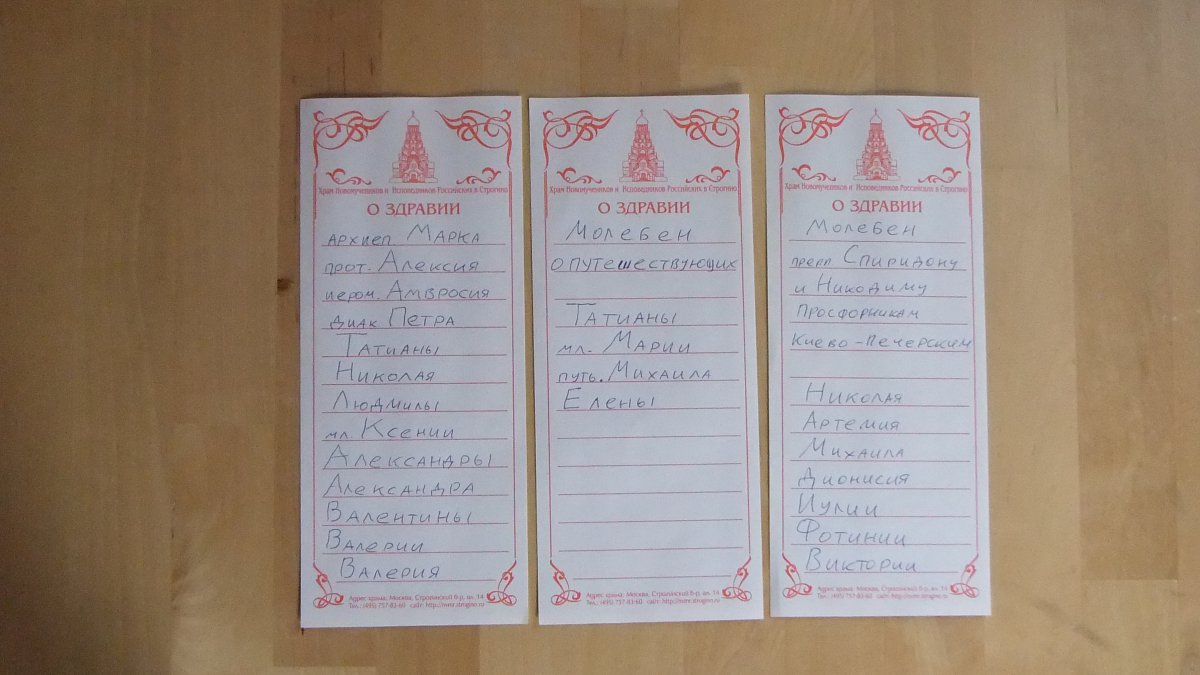 Храм Новомучеников и Исповедников Российских в Строгино
О ЗДРАВИИ
архиеп. Марка
прот. Алексия
иером. Амвросия
диак. Петра
Татианы
Николая
Людмилы
мл. Ксении
Александры
Александра
Валентины
Валерии
Валерия
Адрес храма: Москва, Строгинский б-р, вл. 14
Тел.: (495) 757-83-60 сайт: http://nmr.strogino.ru
Храм Новомучеников и Исповедников Российских в Строгино
О ЗДРАВИИ
Молебен
о путешествующих
Татианы
мл. Марии
путь. Михаила
Елены
Адрес храма: Москва, Строгинский б-р, вл. 14
Тел.: (495) 757-83-60 сайт: http://nmr.strogino.ru
Храм Новомучеников и Исповедников Российских в Строгино
О ЗДРАВИИ
Молебен
препп. Спиридону
и Никодиму
просфорникам
Киево-Печерским
Николая
Артемия
Михаила
Дионисия
Иулии
Фотинии
Виктории
Адрес храма: Москва, Строгинский б-р, вл. 14
Тел.: (495) 757-83-60 сайт: http://nmr.strogino.ru